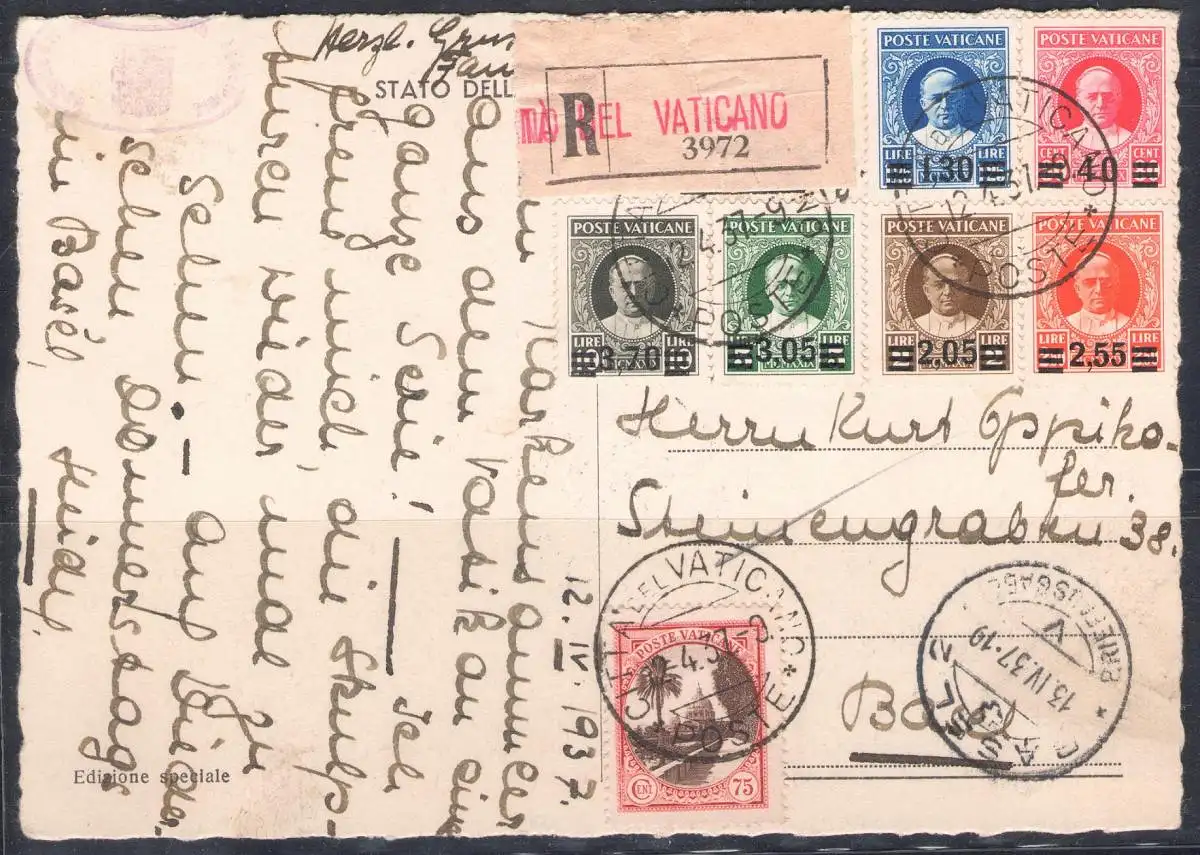 12. IV. 1937.
Markensammler
aus dem Vatikan eine
ganze Serie! Ich
freue mich, die Skulp-
turen wieder mal zu
sehen. – auf Wieder-
sehen Donnerstag
in Basel,
Heidy.
Herzl.
STATO DELL
CITTÀ DEL VATICANO
R
3972
POSTE VATICANE
LIRE 1,30 LIRE
POSTE VATICANE
CENT 40
POSTE VATICANE
LIRE 3,70 LIRE
POSTE VATICANE
LIRE 3,05 LIRE
MCMXXIX
POSTE VATICANE
LIRE 2,05 LIRE
MCMXXIX
POSTE VATICANE
LIRE 2,55 LIRE
Herrn Kurt Oppiko-
fer.
Steinengraben 38.
Basel
CITTÀ DEL VATICANO
POSTE
POSTE VATICANE
CENT 75
BASEL 2
13.IV.37-19
V
BRIEFAUSGABE
Edizione speciale